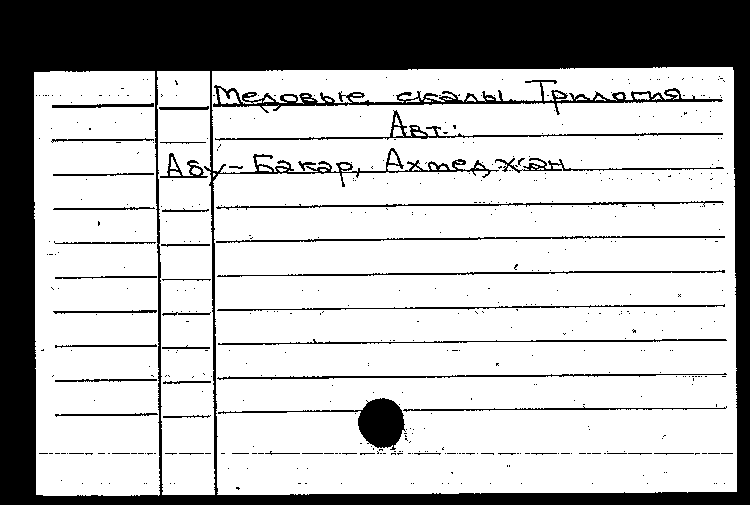 Медовые скалы. Трилогия.
Авт.:
Абу-Бакар, Ахмедхан